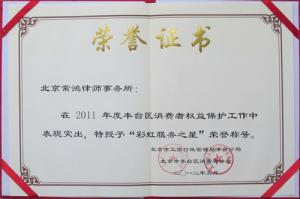 荣誉证书
北京常鸿律师事务所：
在 2011 年度丰台区消费者权益保护工作中
表现突出，特授予“彩虹服务之星”荣誉称号。
北京市工商行政管理局丰台分局
北京市丰台区消费者协会